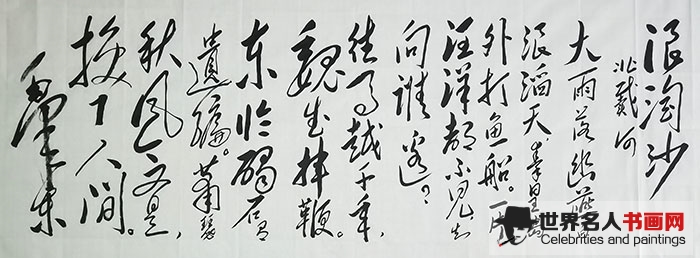 浪淘沙
北戴河
大雨落幽燕白
浪滔天秦皇岛
外打鱼船。一片
汪洋都不见知
向谁边？
往事越千年，
魏武挥鞭。
东临碣石有
遗编。萧瑟
秋风今又是，
换了人间。
毛泽东
世界名人书画网
Celebrities and paintings